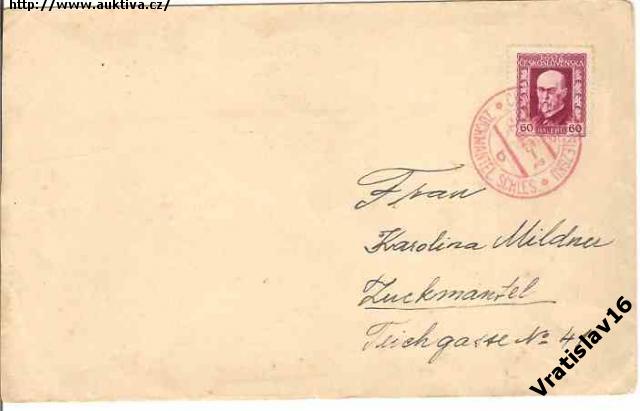 http://www.auktiva.cz/
POŠTA
ČESKOSLOVENSKÁ
60 HALÉŘŮ 60
ZUCKMANTEL SCHLES.
Frau
Karolina Mildner
Zuckmantel
Teichgasse No
Vratislav16